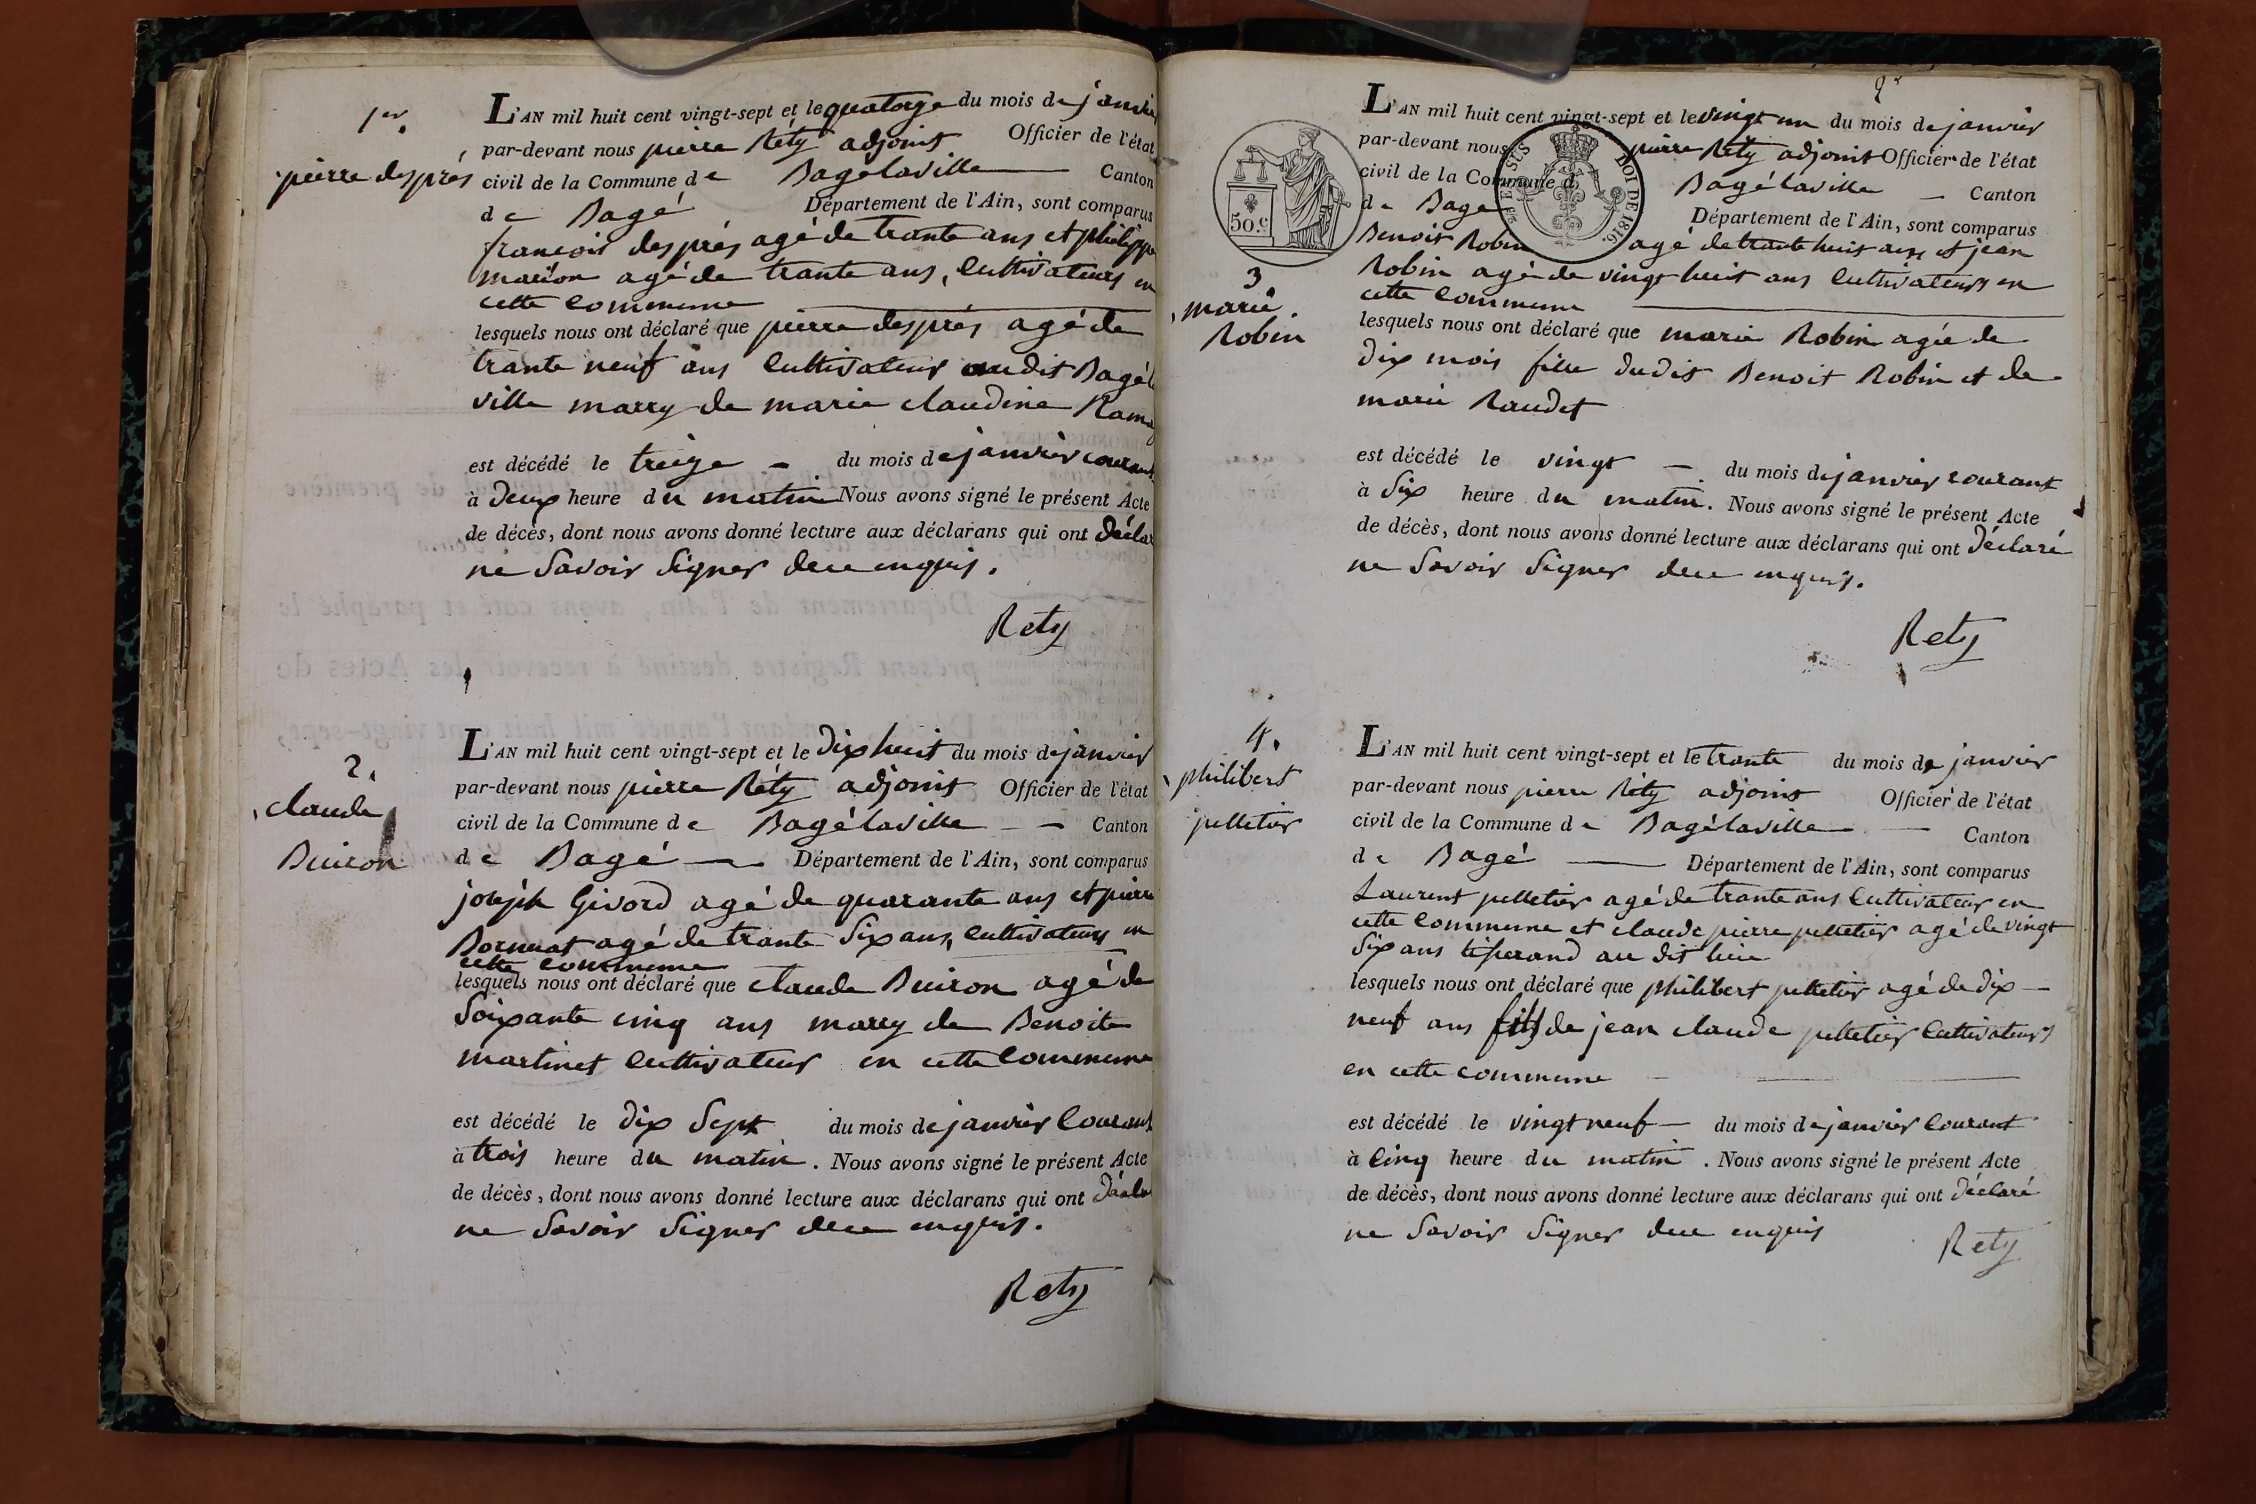 1er.
pierre desprès
L'AN mil huit cent vingt-sept et le quatorze du mois de janvier
par-devant nous pierre Réty adjoint Officier de l'état
civil de la Commune de Bagélaville Canton
de Bagé Département de l'Ain, sont comparus
francois desprès agé de trante ans et philippe
marion agé de trante ans, cultivateurs en
cette commune
lesquels nous ont déclaré que pierre desprès agé de
trante neuf ans cultivateur audit Bagéla
ville marry de marie claudine
est décédé le treize du mois de janvier courant
à deux heure du matin Nous avons signé le présent Acte
de décès, dont nous avons donné lecture aux déclarans qui ont déclaré
ne savoir signer de ce enquis.
Rety
2.
claude
Buiron
L'AN mil huit cent vingt-sept et le dix huit du mois de janvier
par-devant nous pierre Réty adjoint Officier de l'état
civil de la Commune de Bagélaville Canton
de Bagé Département de l'Ain, sont comparus
joseph Givord agé de quarante ans et pierre
agé de trante six ans, cultivateurs en
cette commune
lesquels nous ont déclaré que claude Buiron agé de
soixante cinq ans marry de Benoite
martinet cultivateur en cette commune
est décédé le dix sept du mois de janvier courant
à trois heure du matin. Nous avons signé le présent Acte
de décès, dont nous avons donné lecture aux déclarans qui ont déclaré
ne savoir signer de ce enquis.
Rety
50.c
EN SUS
LOI DE 1816.
3.
marie
Robin
L'AN mil huit cent vingt-sept et le vingt un du mois de janvier
par-devant nous pierre Réty adjoint Officier de l'état
civil de la Commune de Bagélaville Canton
de Bagé Département de l'Ain, sont comparus
Benoit Robin agé de trante huit ans et jean
Robin agé de vingt huit ans cultivateurs en
cette commune
lesquels nous ont déclaré que marie Robin agée de
dix mois fille dudit Benoit Robin et de
marie Raudet
est décédé le vingt du mois de janvier courant
à six heure du matin. Nous avons signé le présent Acte
de décès, dont nous avons donné lecture aux déclarans qui ont déclaré
ne savoir signer de ce enquis.
Rety
4.
philibert
pelletier
L'AN mil huit cent vingt-sept et le trante du mois de janvier
par-devant nous pierre Réty adjoint Officier de l'état
civil de la Commune de Bagélaville Canton
de Bagé Département de l'Ain, sont comparus
Laurent pelletier agé de trante ans cultivateur en
cette commune et claude pierre pelletier agé de vingt
six ans tiserand au dit lieu
lesquels nous ont déclaré que philibert pelletier agé de dix
neuf ans fils de jean claude pelletier cultivateurs
en cette commune
est décédé le vingt neuf du mois de janvier courant
à cinq heure du matin. Nous avons signé le présent Acte
de décès, dont nous avons donné lecture aux déclarans qui ont déclaré
ne savoir signer de ce enquis
Rety